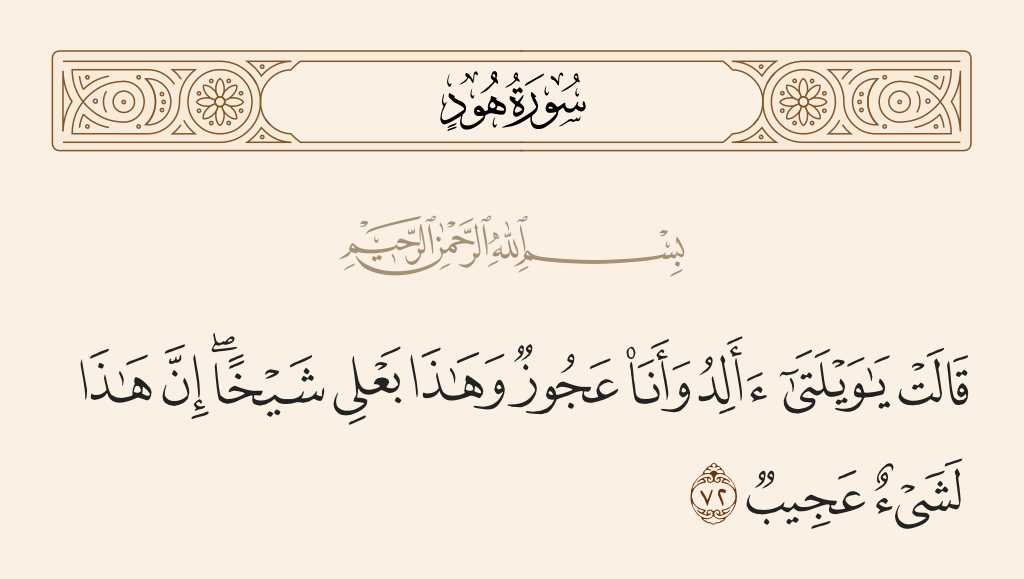 سُورَةُ هُودٍ
بِسْمِ ٱللَّهِ ٱلرَّحْمَٰنِ ٱلرَّحِيمِ
قَالَتْ يَـٰوَيْلَتَىٰٓ ءَأَلِدُ وَأَنَا۠ عَجُوزٌ وَهَـٰذَا بَعْلِى شَيْخًا ۖ إِنَّ هَـٰذَا
لَشَىْءٌ عَجِيبٌ ٧٢